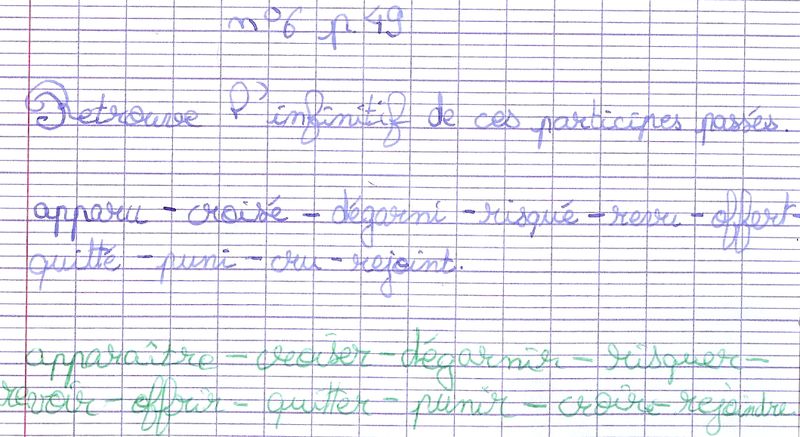 n°6 p. 49
Retrouve l'infinitif de ces participes passés.
apparu - croisé - dégarni - risqué - revu - offert -
quitté - puni - cru - rejoint.
apparaître - croiser - dégarnir - risquer -
revoir - offrir - quitter - punir - croire - rejoindre